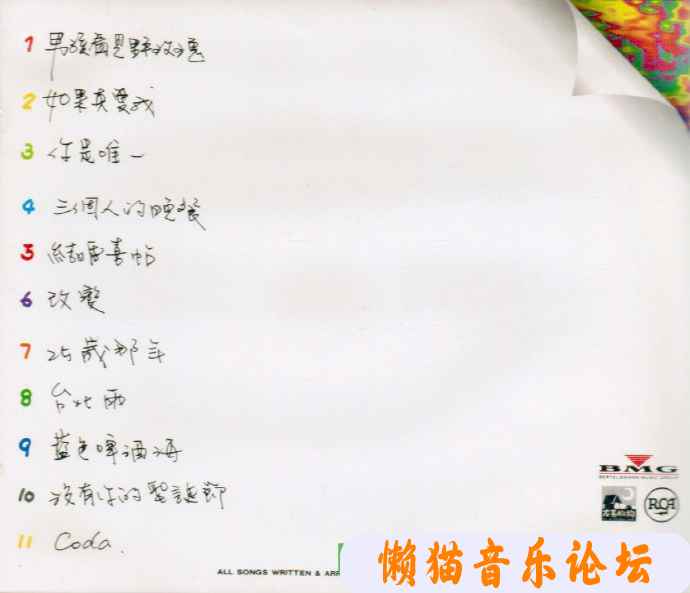 1 男孩看見野玫瑰
2 如果真愛我
3 你是唯一
4 三個人的晚餐
5 結婚喜帖
6 改變
7 25歲那年
8 台北雨
9 藍色啤酒海
10 沒有你的聖誕節
11 Coda.
BMG
BERTELSMANN MUSIC GROUP
RCA
ALL SONGS WRITTEN & ARR
懒猫音乐论坛